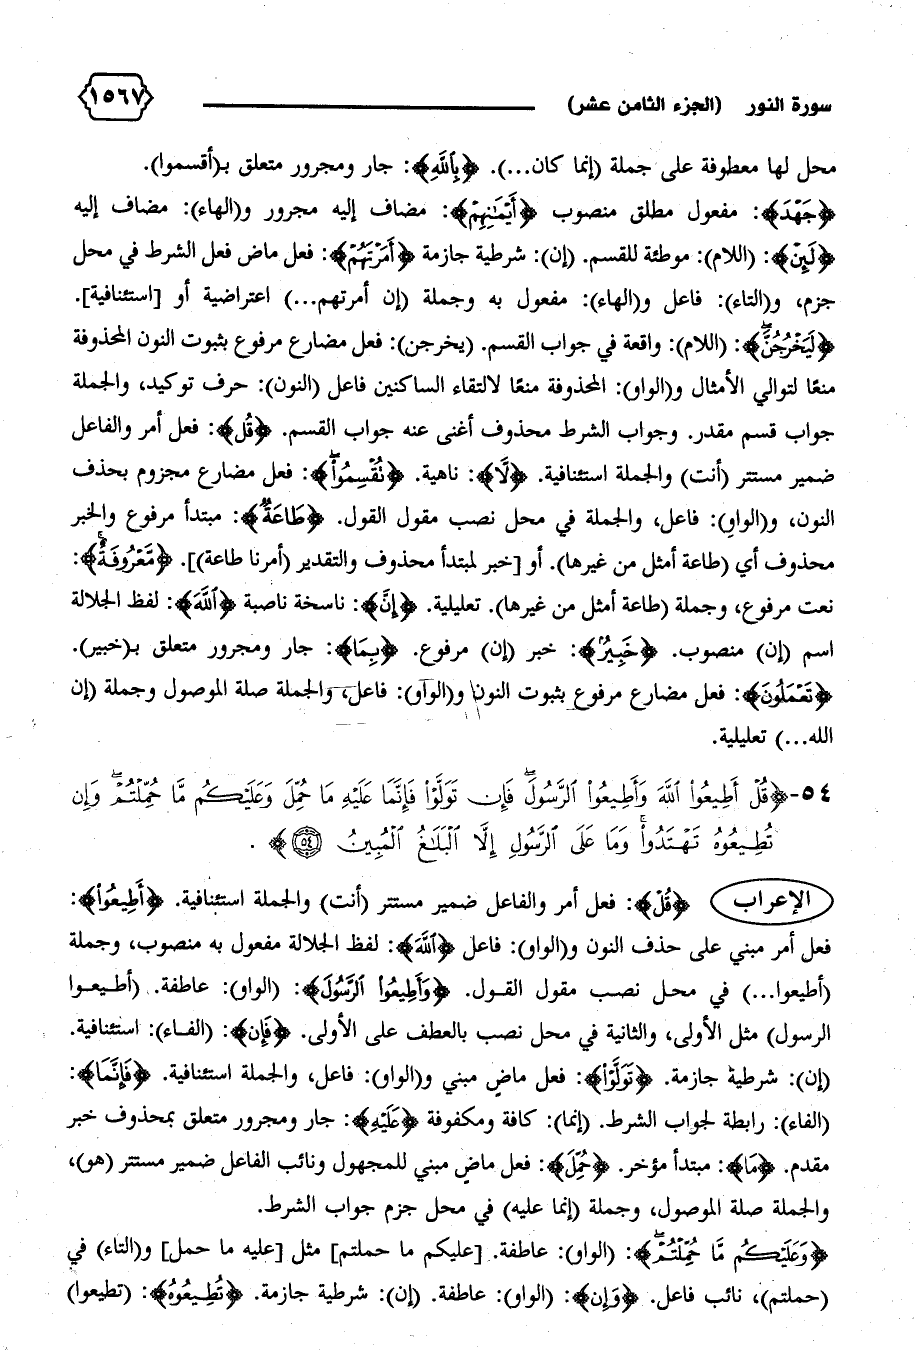 سورة النور (الجزء الثامن عشر) ١٥٦٧
محل لها معطوفة على جملة (إنما كان...). ﴿بِٱللَّهِ﴾: جار ومجرور متعلق بـ(أقسموا).
﴿جَهْدَ﴾: مفعول مطلق منصوب ﴿أَيْمَٰنِهِمْ﴾: مضاف إليه مجرور و(الهاء): مضاف إليه
﴿لَئِنْ﴾: (اللام): موطئة للقسم. (إن): شرطية جازمة ﴿أَمَرْتَهُمْ﴾: فعل ماض فعل الشرط في محل
جزم، و(التاء): فاعل و(الهاء): مفعول به وجملة (إن أمرتهم...) اعتراضية أو [استئنافية].
﴿لَيَخْرُجُنَّۖ﴾: (اللام): واقعة في جواب القسم. (يخرجن): فعل مضارع مرفوع بثبوت النون المحذوفة
منعًا لتوالي الأمثال و(الواو): المحذوفة منعًا لالتقاء الساكنين فاعل (النون): حرف توكيد، والجملة
جواب قسم مقدر. وجواب الشرط محذوف أغنى عنه جواب القسم. ﴿قُل﴾: فعل أمر والفاعل
ضمير مستتر (أنت) والجملة استئنافية. ﴿لَّا﴾: ناهية. ﴿تُقْسِمُوا۟ۖ﴾: فعل مضارع مجزوم بحذف
النون، و(الواو): فاعل، والجملة في محل نصب مقول القول. ﴿طَاعَةٌ﴾: مبتدأ مرفوع والخبر
محذوف أي (طاعة أمثل من غيرها). أو [خبر لمبتدأ محذوف والتقدير (أمرنا طاعة)]. ﴿مَّعْرُوفَةٌۚ﴾:
نعت مرفوع، وجملة (طاعة أمثل من غيرها). تعليلية. ﴿إِنَّ﴾: ناسخة ناصبة ﴿ٱللَّهَ﴾: لفظ الجلالة
اسم (إن) منصوب. ﴿خَبِيرٌۢ﴾: خبر (إن) مرفوع. ﴿بِمَا﴾: جار ومجرور متعلق بـ(خبير).
﴿تَعْمَلُونَ﴾: فعل مضارع مرفوع بثبوت النون و(الواو): فاعل، والجملة صلة الموصول وجملة (إن
الله...) تعليلية.
٥٤-﴿قُلْ أَطِيعُوا۟ ٱللَّهَ وَأَطِيعُوا۟ ٱلرَّسُولَۖ فَإِن تَوَلَّوْا۟ فَإِنَّمَا عَلَيْهِ مَا حُمِّلَ وَعَلَيْكُم مَّا حُمِّلْتُمْۖ وَإِن
تُطِيعُوهُ تَهْتَدُوا۟ۚ وَمَا عَلَى ٱلرَّسُولِ إِلَّا ٱلْبَلَٰغُ ٱلْمُبِينُ ٥٤﴾ .
الإعراب ﴿قُلْ﴾: فعل أمر والفاعل ضمير مستتر (أنت) والجملة استئنافية. ﴿أَطِيعُوا۟﴾:
فعل أمر مبني على حذف النون و(الواو): فاعل ﴿ٱللَّهَ﴾: لفظ الجلالة مفعول به منصوب، وجملة
(أطيعوا...) في محل نصب مقول القول. ﴿وَأَطِيعُوا۟ ٱلرَّسُولَ﴾: (الواو): عاطفة. (أطيعوا
الرسول) مثل الأولى، والثانية في محل نصب بالعطف على الأولى. ﴿فَإِن﴾: (الفاء): استئنافية.
(إن): شرطية جازمة. ﴿تَوَلَّوْا۟﴾: فعل ماضٍ مبني و(الواو): فاعل، والجملة استئنافية. ﴿فَإِنَّمَا﴾:
(الفاء): رابطة لجواب الشرط. (إنما): كافة ومكفوفة ﴿عَلَيْهِ﴾: جار ومجرور متعلق بمحذوف خبر
مقدم. ﴿مَا﴾: مبتدأ مؤخر. ﴿حُمِّلَ﴾: فعل ماضٍ مبني للمجهول ونائب الفاعل ضمير مستتر (هو)،
والجملة صلة الموصول، وجملة (إنما عليه) في محل جزم جواب الشرط.
﴿وَعَلَيْكُم مَّا حُمِّلْتُمْۖ﴾: (الواو): عاطفة. [عليكم ما حملتم] مثل [عليه ما حمل] و(التاء) في
(حملتم)، نائب فاعل. ﴿وَإِن﴾: (الواو): عاطفة. (إن): شرطية جازمة. ﴿تُطِيعُوهُ﴾: (تطيعوا)